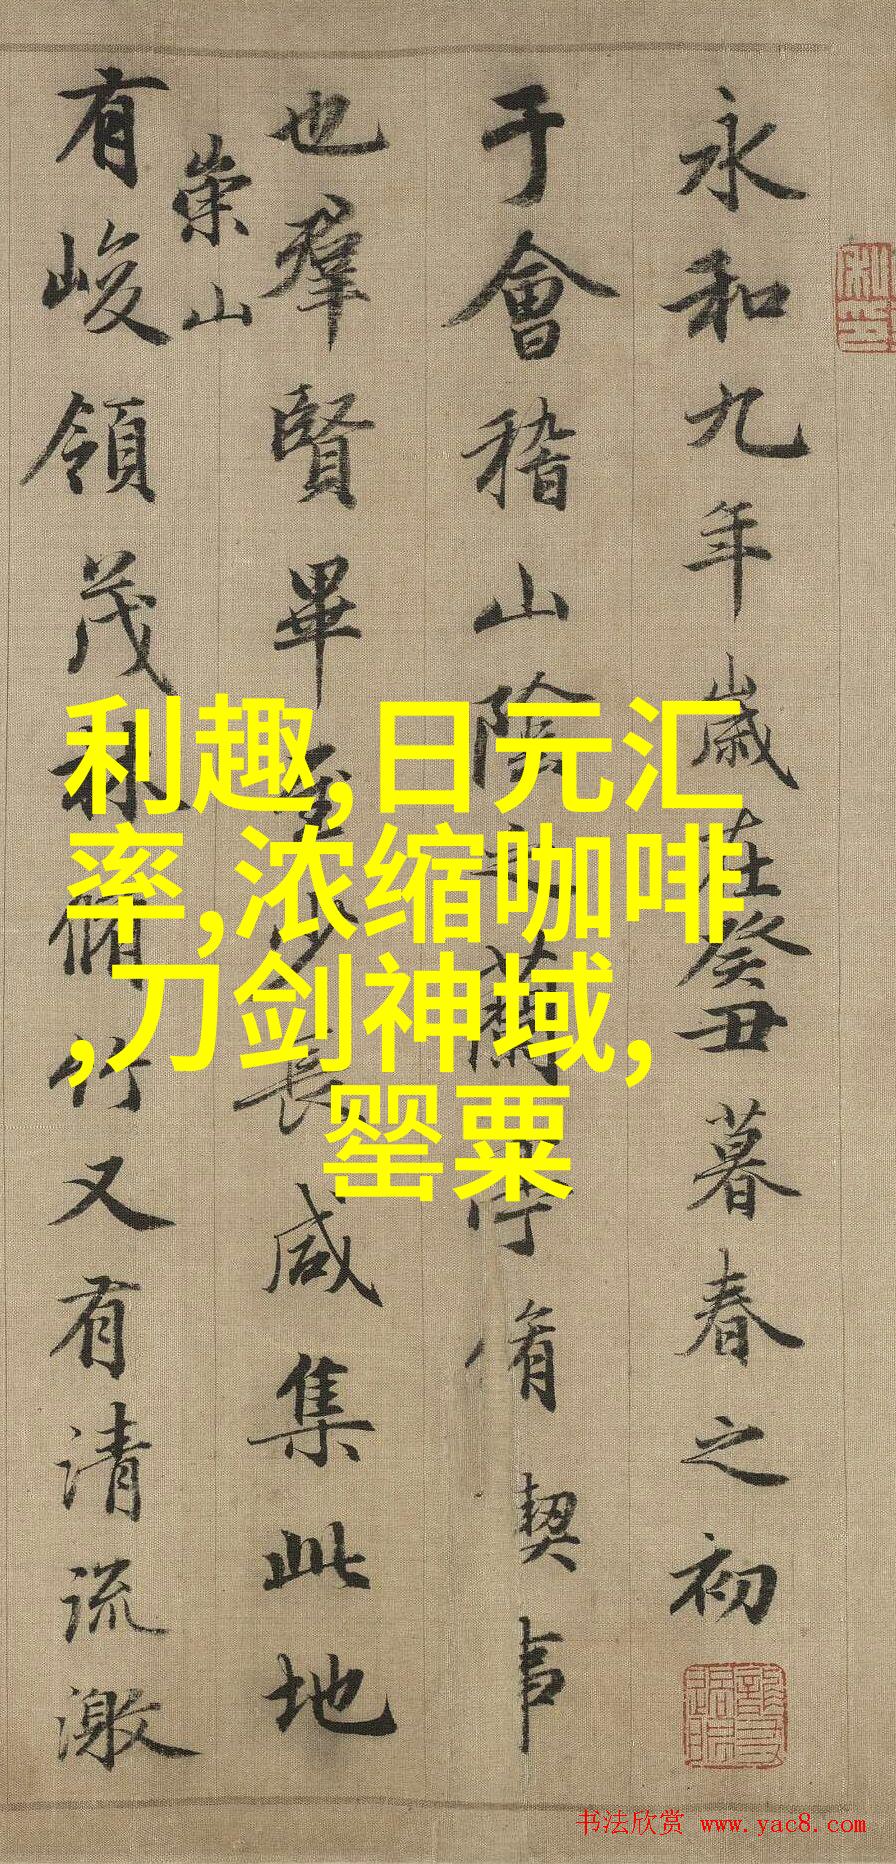 永和九年歲在癸丑暮春之初
于會稽山陰之蘭亭脩契事
也羣賢畢至少長咸集此地
有崇山峻領茂林脩竹又有清流激
利趣,日元汇
率,浓缩咖啡
,刀剑神域,
罂粟
书法欣赏 www.yac8.com